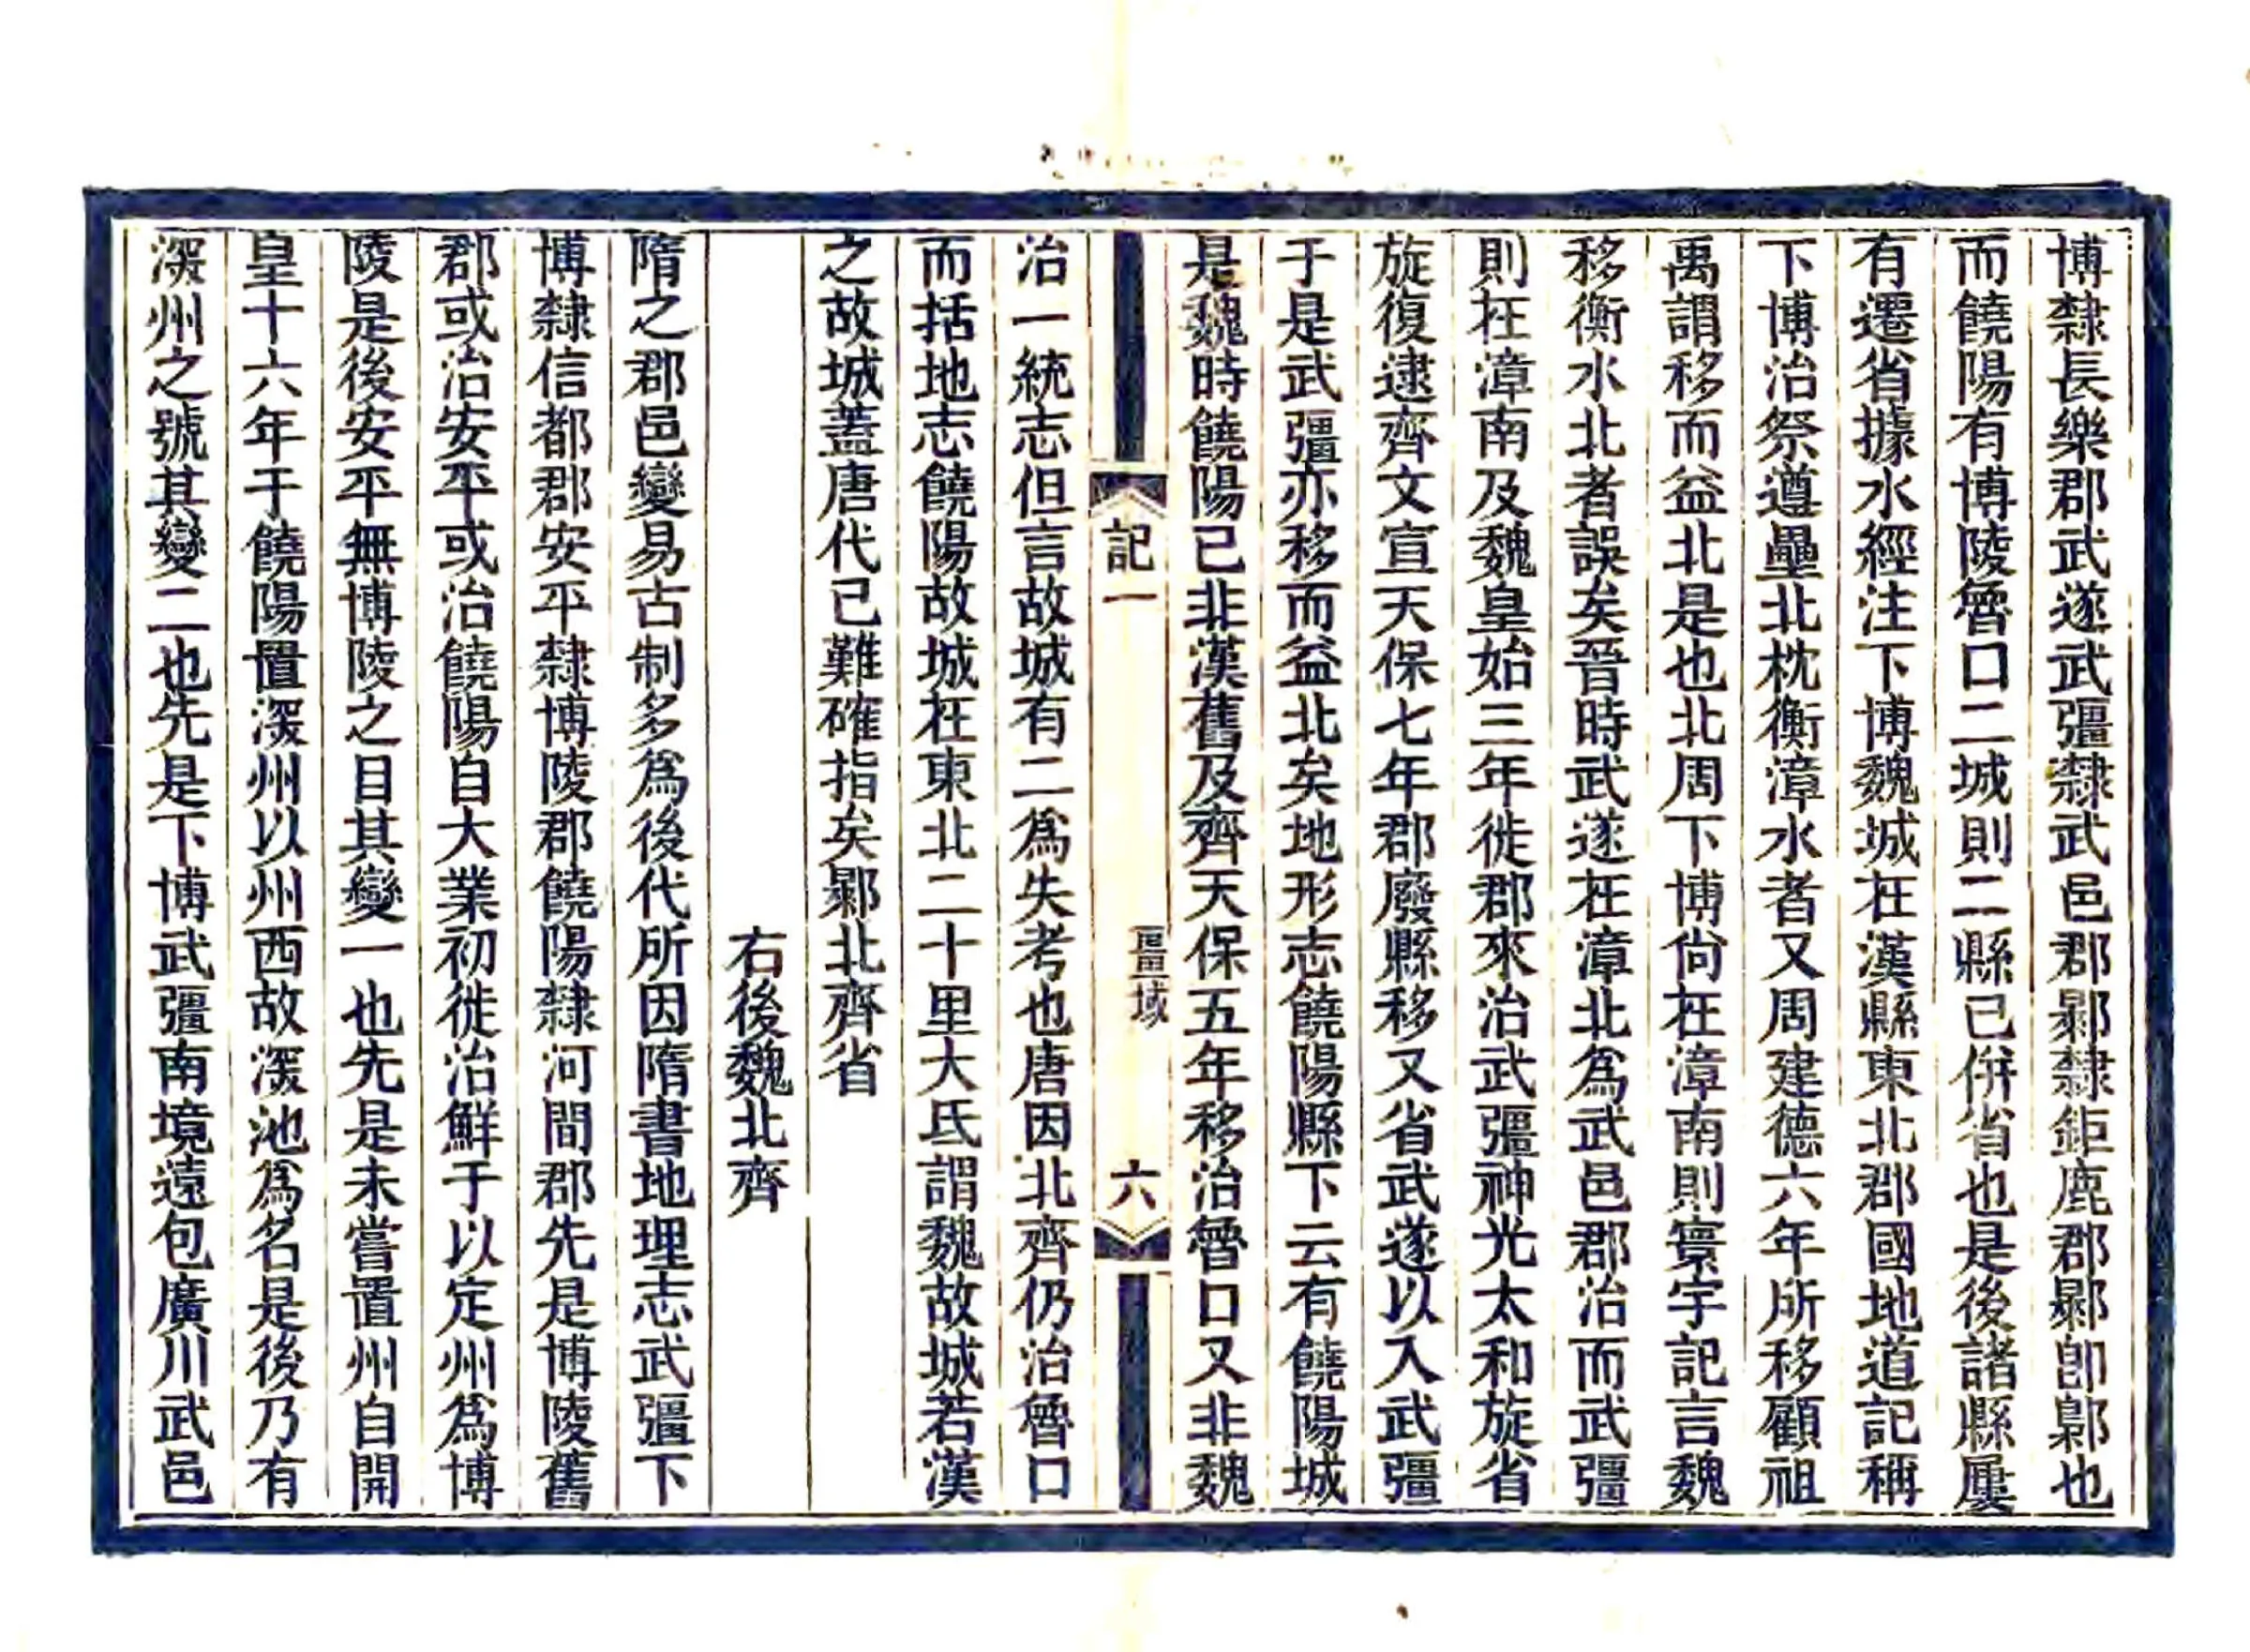 博隸長樂郡武遂武彊隸武邑郡鄡隸鉅鹿郡鄡卽鄡也
而饒陽有博陵魯口二城則二縣已併省也是後諸縣屢
有遷省據水經注下博魏城在漢縣東北郡國地道記稱
下博治祭遵壘北枕衡漳水者又周建德六年所移顧祖
禹謂移而益北是也北周下博尙在漳南則寰宇記言魏
移衡水北者誤矣晉時武遂在漳北爲武邑郡治而武彊
則在漳南及魏皇始三年徙郡來治武彊神光太和旋省
旋復逮齊文宣天保七年郡廢縣移又省武遂以入武彊
于是武彊亦移而益北矣地形志饒陽縣下云有饒陽城
是魏時饒陽已非漢舊及齊天保五年移治魯口又非魏
記一
畺域
六
治一統志但言故城有二爲失考也唐因北齊仍治魯口
而括地志饒陽故城在東北二十里大氐謂魏故城若漢
之故城蓋唐代已難確指矣鄡北齊省
右後魏北齊
隋之郡邑變易古制多爲後代所因隋書地理志武彊下
博隸信都郡安平隸博陵郡饒陽隸河間郡先是博陵舊
郡或治安平或治饒陽自大業初徙治鮮于以定州爲博
陵是後安平無博陵之目其變一也先是未嘗置州自開
皇十六年于饒陽置深州以州西故深池爲名是後乃有
深州之號其變二也先是下博武彊南境遠包廣川武邑